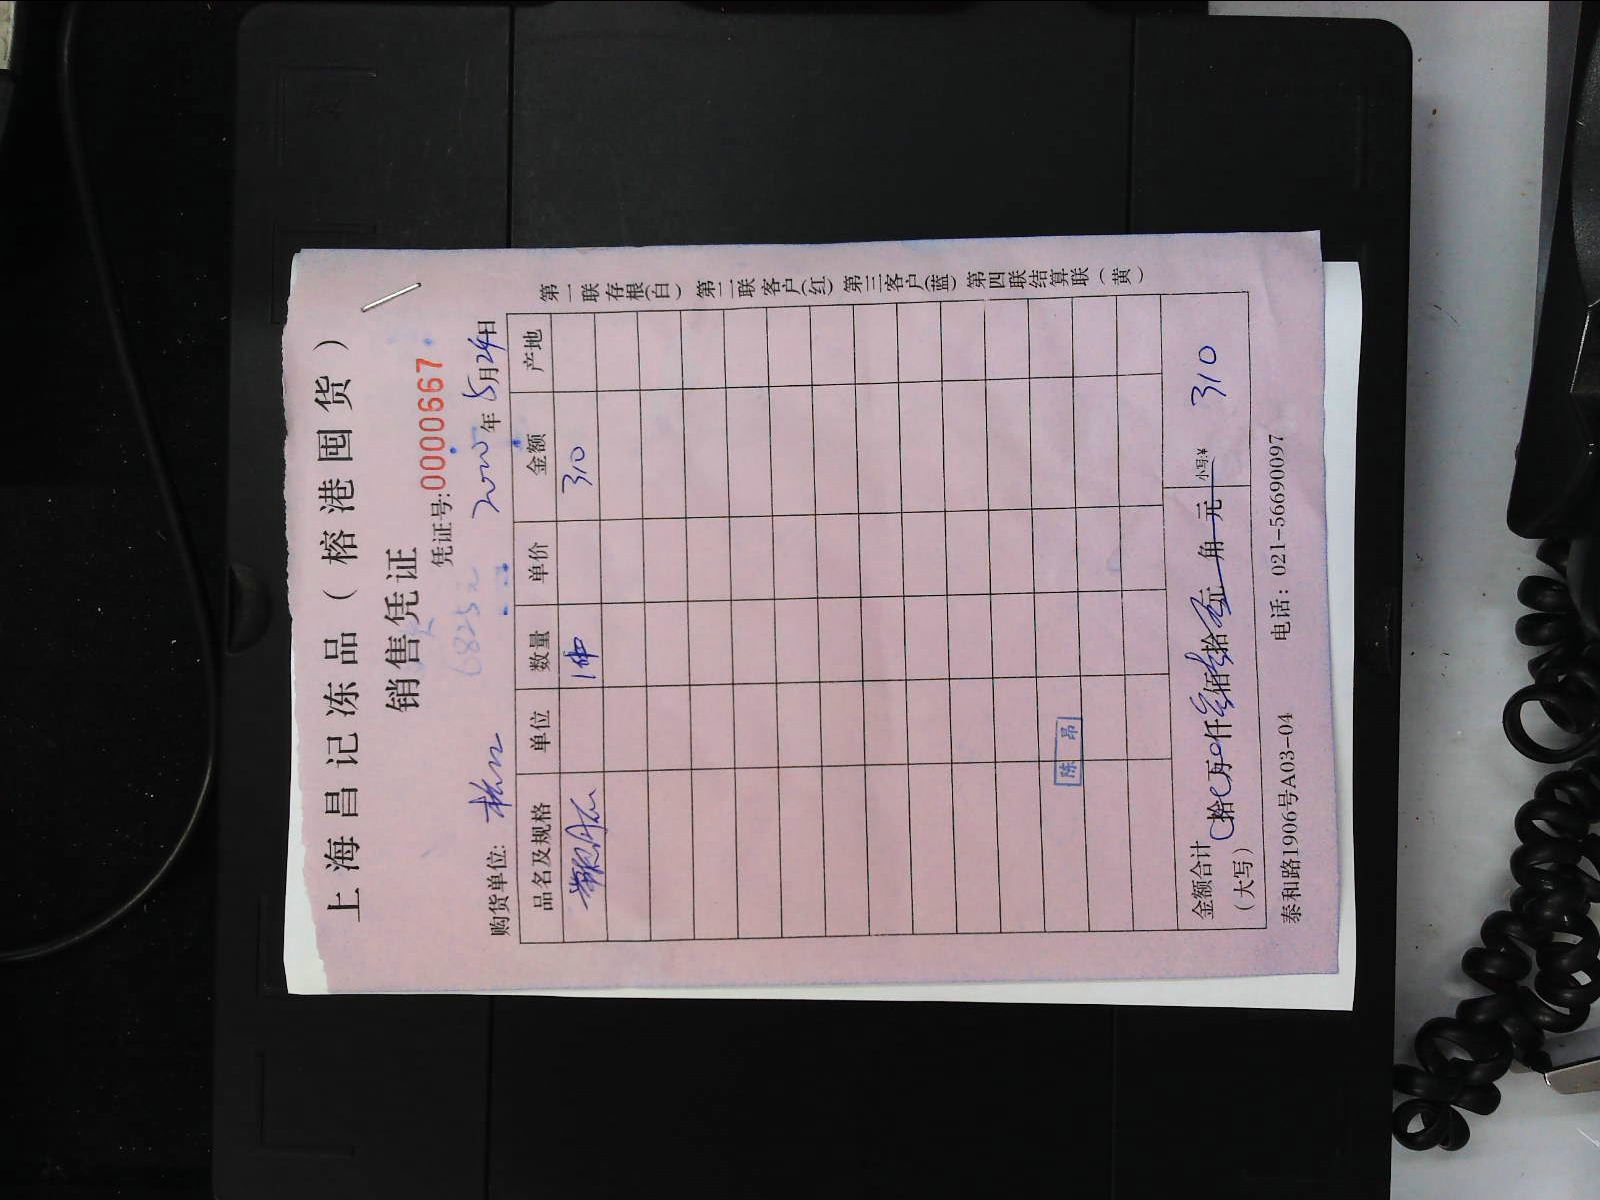 上海昌记冻品（榕港囤货）
销售凭证
凭证号:0000667
6825元
购货单位: 年5月24日
品名及规格 单位 数量 单价 金额 产地
1件 310
陈昂
金额合计（大写） 拾 万 仟叁佰 拾 元 角 元 小写:¥ 310
泰和路1906号A03-04 电话: 021-56690097
第一联存根(白) 第二联客户(红) 第三客户(蓝) 第四联结算联(黄)